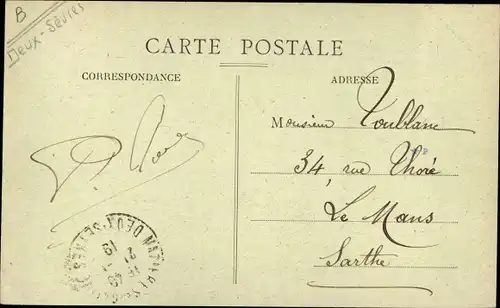 B
Deux-Sèvres
CARTE POSTALE
CORRESPONDANCE
ADRESSE
Monsieur Toublanc
34, rue Thoré
Le Mans
Sarthe
DEUX-SÈVRES